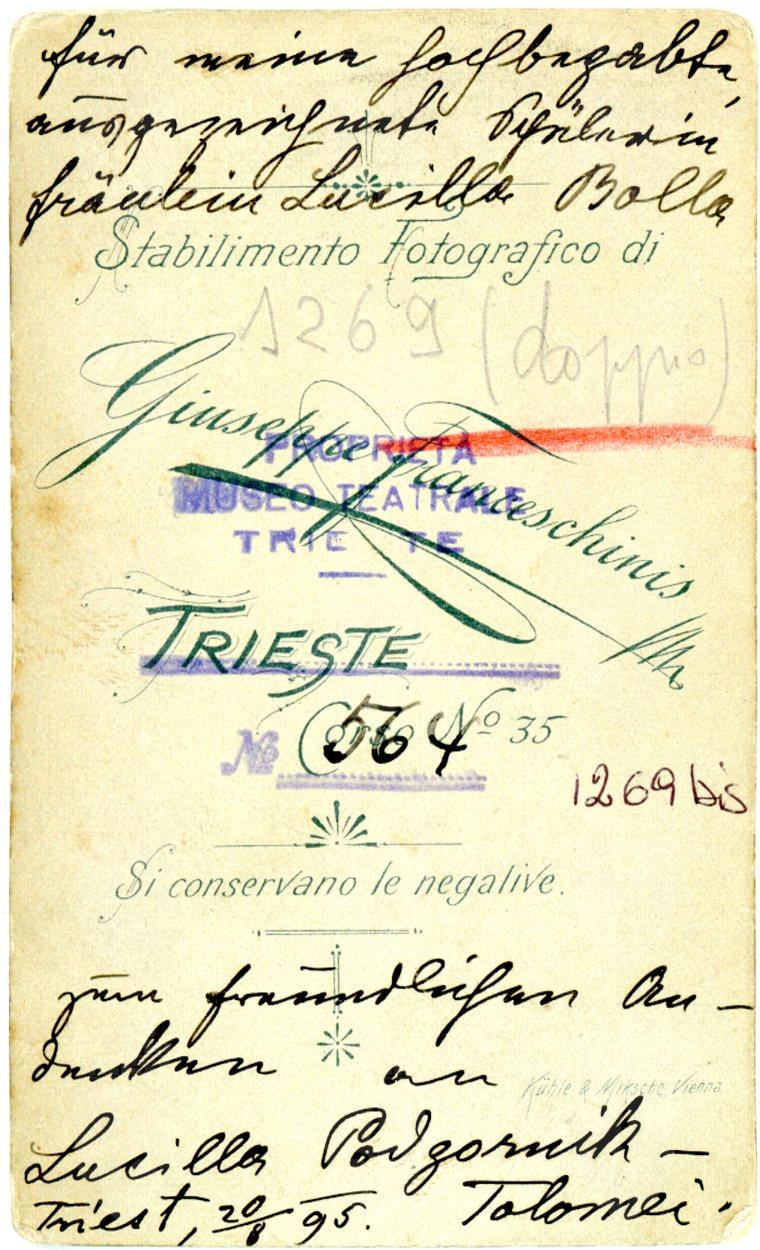 für meine hochbegabte,
ausgezeichnete Schülerin
Fräulein Lucilla Bolla
Stabilimento Fotografico di
1269 (doppio)
Giuseppe Franceschinis
PROPRIETÀ
MUSEO TEATRALE
TRIESTE
TRIESTE
Corso No 35
No 564
1269 bis
Si conservano le negative.
zum freundlichen An-
denken an
Kühle & Miksche, Vienna
Lucilla Podgornik-
Tolomei.
Triest, 20/8 95.